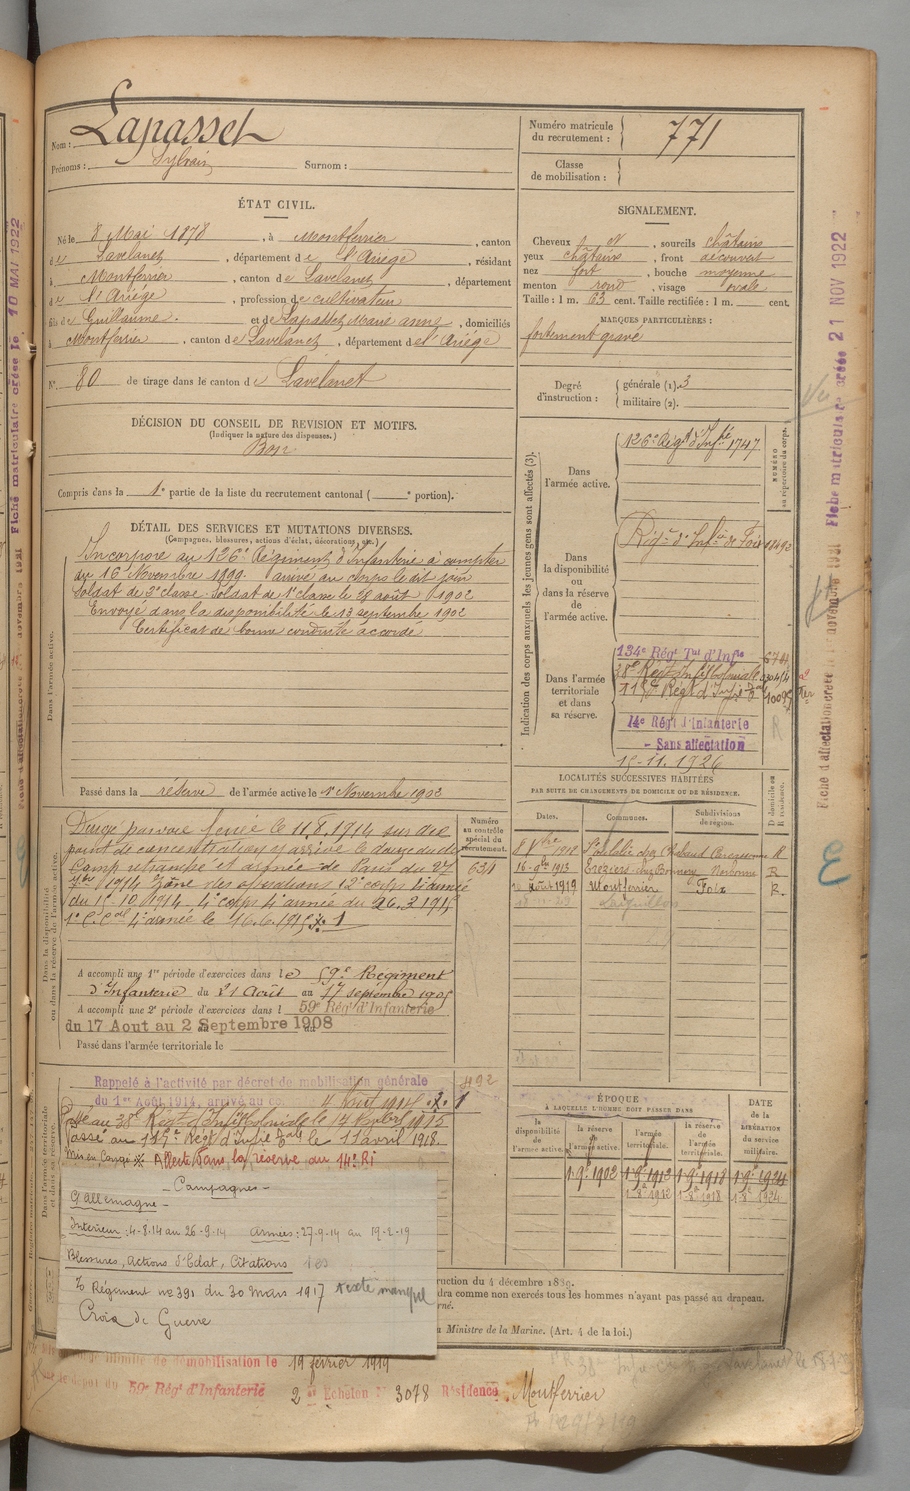 Nom : Lapasset
Prénoms : Sylvain Surnom :
Numéro matricule du recrutement : 771
Classe de mobilisation :
ÉTAT CIVIL.
Né le 8 Mai 1878, à Montferrier, canton
de Lavelanet, département de l'Ariège, résidant
à Montferrier, canton de Lavelanet, département
de l'Ariège, profession de cultivateur
fils de Guillaume. et de Lapasset Marie anne, domiciliés
à Montferrier, canton de Lavelanet, département de l'Ariége
N° 80 de tirage dans le canton de Lavelanet
SIGNALEMENT.
Cheveux, sourcils châtains
yeux châtains, front découvert
nez fort, bouche moyenne
menton rond, visage ovale
Taille : 1 m. 63 cent. Taille rectifiée : 1 m. cent.
MARQUES PARTICULIÈRES :
fortement gravé
Degré d'instruction : générale (1). 3
militaire (2).
DÉCISION DU CONSEIL DE REVISION ET MOTIFS.
(Indiquer la nature des dispenses.)
Bon
Compris dans la 1e partie de la liste du recrutement cantonal ( e portion).
DÉTAIL DES SERVICES ET MUTATIONS DIVERSES.
(Campagnes, blessures, actions d'éclat, décorations, etc.)
Dans l'armée active.
Incorporé au 126e Régiment d'Infanterie à compter
du 16 Novembre 1899. arrivé au corps le dit jour
Soldat de 2e classe. Soldat de 1e classe le 28 août 1902
Envoyé dans la disponibilité le 13 septembre 1902
Certificat de bonne conduite accordé
Passé dans la réserve de l'armée active le 1er Novembre 1902
Indication des corps auxquels les jeunes gens sont affectés (3).
NUMÉRO au répertoire du corps.
Dans l'armée active.
126e Régt d'Infrie 1747
Dans la disponibilité ou dans la réserve de l'armée active.
Régt d'Infie de Foix
Dans l'armée territoriale et dans sa réserve.
134e Régt Tal d'Infie
38e Regt Infie Coloniale
115e Régt d'Infie
14e Régt d'Infanterie
- Sans affectation
15-11.1926
Dans la disponibilité ou dans la réserve de l'armée active.
Dirigé par voie ferrée le 11.8.1914 sur
point de concentration et arrivé le douze du dt
Camp retranché et armée de Paris du 27
7bre 1914 Zône des opérations 2e corps armée
du 1er-10 1914. 4e corps 4e armée du 26.2.1915
1e C. Cal 4e armée le 16.6.1915 1
Numéro au contrôle spécial du recrutement.
634
A accompli une 1re période d'exercices dans le 59e Régiment
d'Infanterie du 21 Août au 17 septembre 1905
A accompli une 2e période d'exercices dans l 59e Régt d'Infanterie
du 17 Aout au 2 Septembre 1908
Passé dans l'armée territoriale le
LOCALITÉS SUCCESSIVES HABITÉES
PAR SUITE DE CHANGEMENTS DE DOMICILE OU DE RÉSIDENCE.
Dates. Communes. Subdivisions de région. D domicile ou R résidence.
Carcassonne R
1913 Béziers Narbonne R
Août 1919 Montferrier Foix R
Rappelé à l'activité par décret de mobilisation générale
du 1er Août 1914, arrivé au co. 4 Août 1914. 1
492
Passé au 38e Régt d'Infie Coloniale le
Passé au 115e Régt d'Infie Tale le 11 avril 1918.
Mis en Congé Affecté dans la réserve du 14e RI
ÉPOQUE
A LAQUELLE L'HOMME DOIT PASSER DANS
la disponibilité de l'armée active. la réserve de l'armée active. l'armée territoriale. la réserve de l'armée territoriale.
DATE de la LIBÉRATION du service militaire.
1-9e 1902 1-9e 1912 1-9e 1918 1-9e 1924
1-8e 1912 1-8e 1918 1-8e 1924
- Campagnes -
C/ Allemagne -
Intérieur : 4-8.14 au 26-9.14 Armées : 27-9-14 au 19-2-19
Blessures, Actions d'Eclat, Citations
O Régiment no 391 du 30 mars 1917 texte manque
Croix de Guerre
ruction du 4 décembre 1889.
dra comme non exercés tous les hommes n'ayant pas passé au drapeau.
Ministre de la Marine. (Art. 4 de la loi.)
illimité de démobilisation le 19 février 1919
le dépôt du 59e Régt d'Infanterie 2 e Echelon N° 3078 Résidence Montferrier
Fiche matriculaire créée le 10 MAI 1922
Fiche matricule créée 21 NOV 1922
Fiche d'affectation créée le novembre 1921